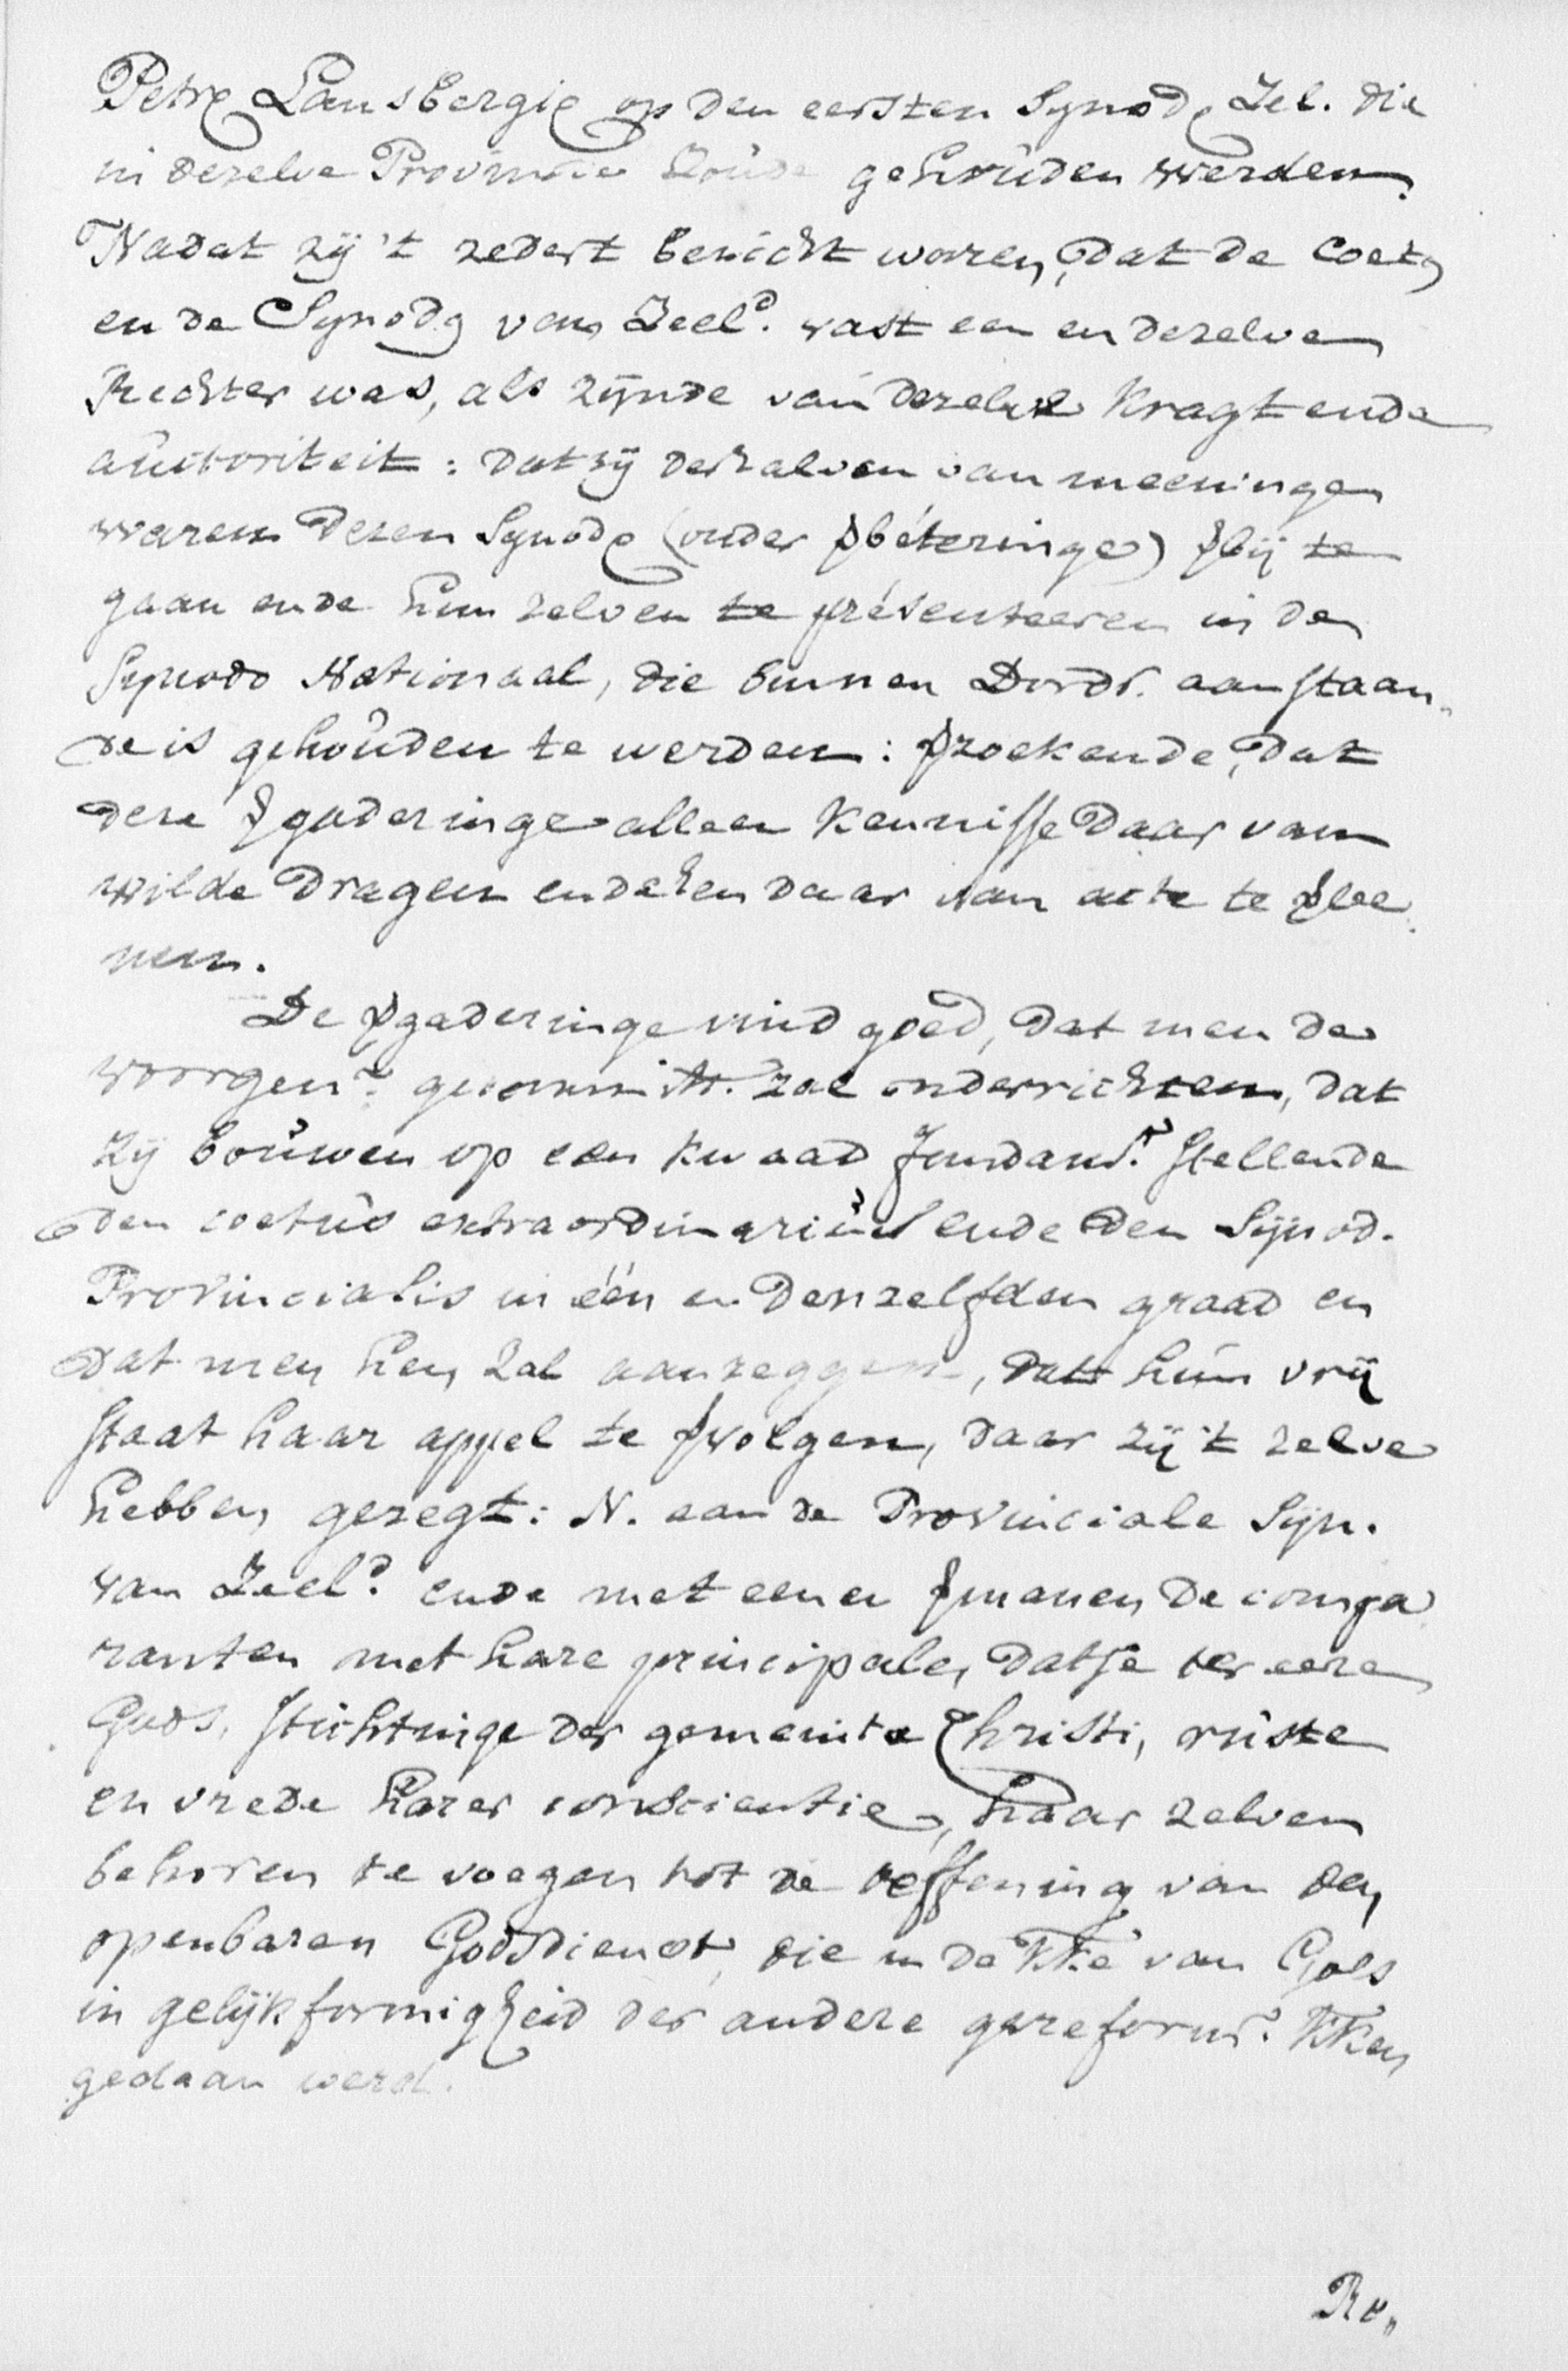 Petrꝰ Lansbergiꝰ op den eersten Synodꝰ Zel. die
in dezelve Provincie zoude gehouden werden.
Nadat zij 't zedert bericht waren, dat de Coetꝰ
en de Synodꝰ van Zeelᵈ. vast een en dezelve
Rechter was, als zijnde van dezelve Kragt ende
autoriteit: dat zij derhalven van meeninge
waren dezen Synodꝰ (onder ꝟbéteringe) ꝟbij te
gaan ende hun zelven te présenteeren in de
Synodo Nationaal, die binnen Dordr. aanstaan„
de is gehouden te werden: ꝟzoekende, dat
deze ꝟgaderinge alleen Kennisse daar van
wilde dragen ende hen daar van acte te ꝟlee„
nen.
De ꝟgaderinge vind goed, dat men de
voorgenᵈᵉ. gecommitt. zal onderrichten, dat
zij bouwen op een kwaad fundamᵗ. stellende
den coetus extraordinarius ende den Synod.
Provincialis in één en denzelfden graad en
dat men hen zal aanzeggen, dat hun vrij
staat haar appel te ꝟvolgen, daar zij 't zelve
hebben gezegt: N. aan de Provinciale Syn.
van Zeelᵈ. ende met eenen ꝟmanen de compa
ranten met hare principale, datse ter eere
Gods, stichtinge der gemeinte Christi, ruste
en vrede harer conscientie, haar zelven
behoren te voegen tot de oeffening van den
openbaren Godsdienst, die in de KKe van Goes
in gelijkformigheid der andere gereformᵈ. KKen
gedaan werd.
Re„